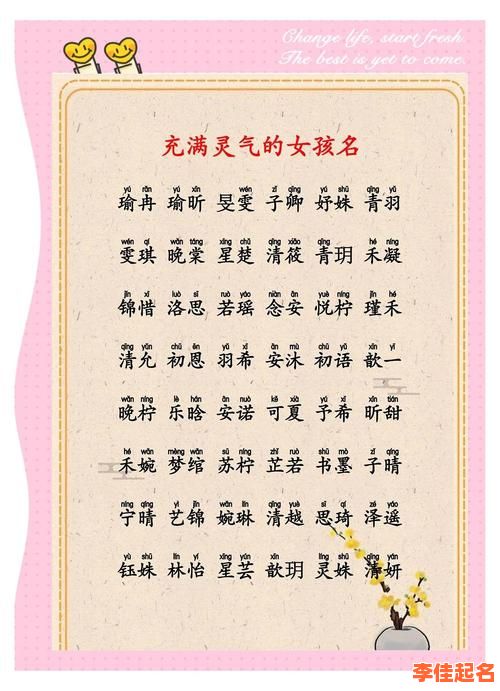 Change life, start fresh
The best is yet to come.
充满灵气的女孩名
yú rǎn yú xīn wén zǐ qīng yú shū qīng yǔ
瑜冉 瑜昕 旻雯 子卿 妤姝 青羽
wén qí wǎn táng xīng chǔ qīng xiǎo qīng hé níng
雯琪 晚棠 星楚 清筱 青玥 禾凝
jǐn xī luò sī ruò yáo niàn ān yuè níng jǐn hé
锦惜 洛思 若瑶 念安 悦柠 瑾禾
qīng yǔn chū ēn yǔ xī ān mù chū yǔ xīn yī
清允 初恩 羽希 安沐 初语 歆一
wǎn níng lè hán ān nuò kě xià yǔ xī xīn tián
晚柠 乐晗 安诺 可夏 予希 昕甜
hé wǎn mèng wǎn sū níng zhǐ ruò shū mò zǐ qíng
禾婉 梦绾 苏柠 芷若 书墨 子晴
níng qíng yì jǐn wǎn lín qīng yuè sī qí zé yáo
宁晴 艺锦 婉琳 清越 思琦 泽遥
yù shū lín yí xīng yún xīn yuè líng shū qīng yán
钰姝 林怡 星芸 歆玥 灵姝 清妍
李佳起名